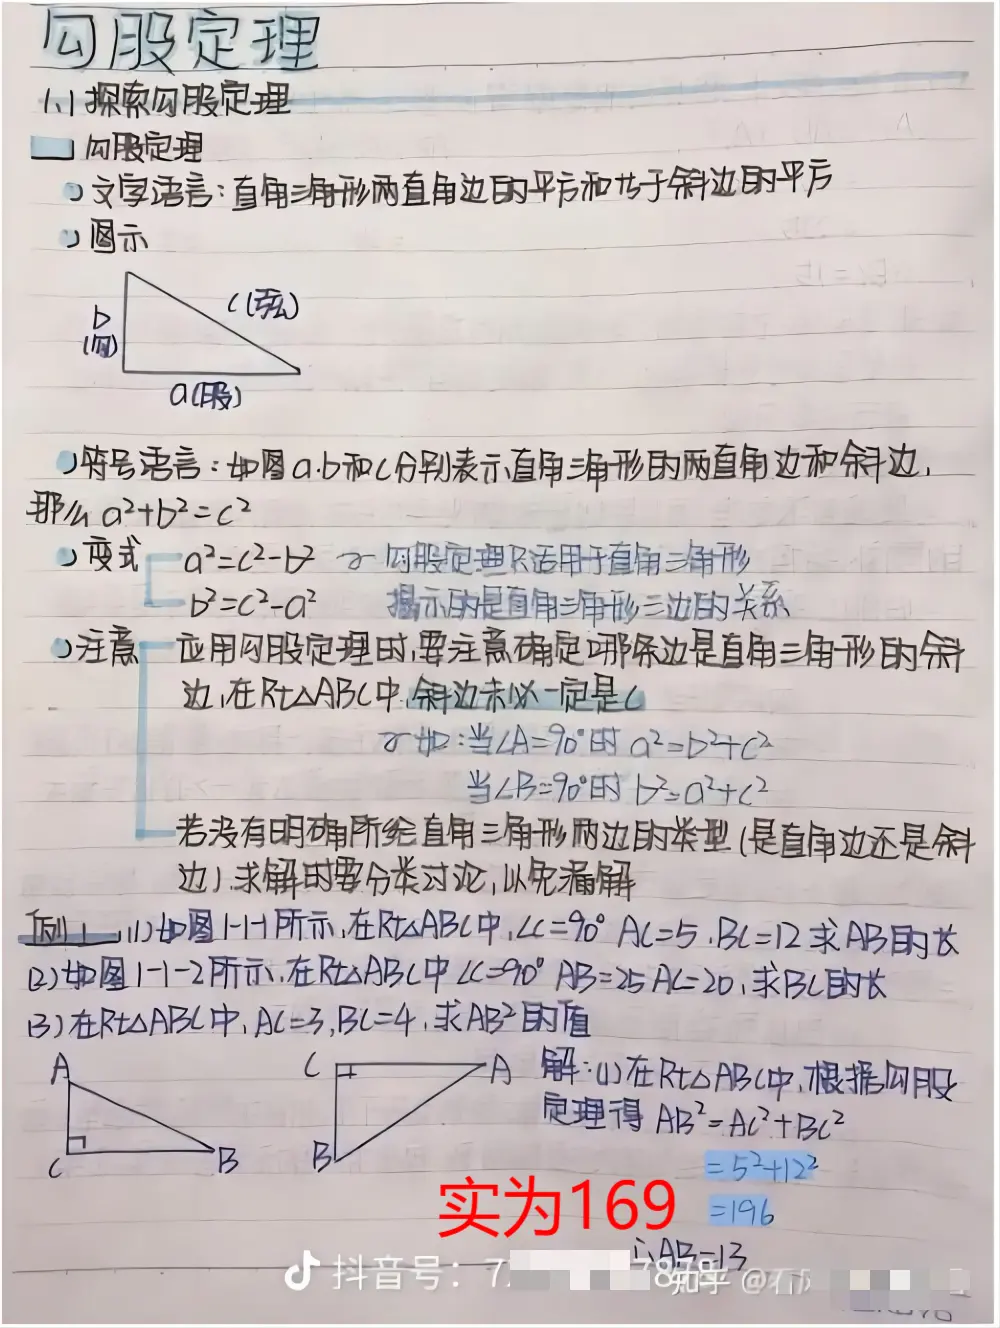 勾股定理
1.1 探索勾股定理
勾股定理
文字语言:直角三角形两直角边的平方和等于斜边的平方
图示
c(弦)
b
(勾)
a(股)
符号语言:如图a.b和c分别表示直角三角形的两直角边和斜边,
那么a²+b²=c²
变式 a²=c²-b² 勾股定理只适用于直角三角形
b²=c²-a² 揭示的是直角三角形三边的关系
注意 应用勾股定理时,要注意确定哪条边是直角三角形的斜
边,在Rt△ABC中,斜边未必一定是c
如:当∠A=90°时 a²=b²+c²
当∠B=90°时 b²=a²+c²
若没有明确所给直角三角形两边的类型(是直角边还是斜
边).求解时要分类讨论,以免漏解
例1 (1)如图1-1-1所示,在Rt△ABC中,∠C=90° AC=5.BC=12求AB的长
(2)如图1-1-2所示.在Rt△ABC中∠C=90° AB=25 AC=20,求BC的长
(3)在Rt△ABC中,AC=3,BC=4,求AB²的值
A
C
B
C
A
B
解:(1)在Rt△ABC中,根据勾股
定理得 AB²=AC²+BC²
=5²+12²
=196
实为169
∴AB=13
抖音号:7
知乎 @石